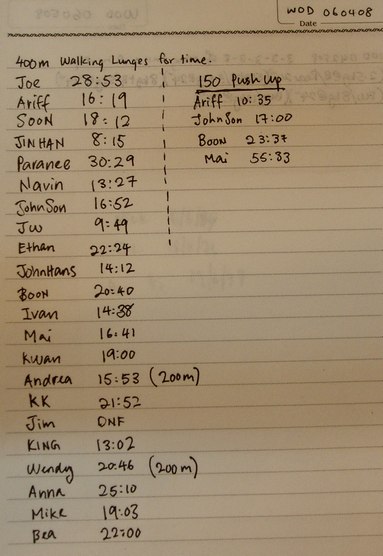 WOD 060408
Date
400m Walking Lunges for time.
Joe 28:53
Ariff 16:19
SOON 18:12
JINHAN 8:15
Paranee 30:29
Navin 13:27
JohnSon 16:52
JW 9:49
Ethan 22:24
JohnHans 14:12
BOON 20:40
Ivan 14:38
Mai 16:41
Kwan 19:00
Andrea 15:53 (200m)
KK 21:52
Jim DNF
KING 13:02
Wendy 20:46 (200m)
Anna 25:10
Mike 19:03
Bea 22:00
150 Push Up
Ariff 10:35
JohnSon 17:00
BOON 23:37
Mai 55:33